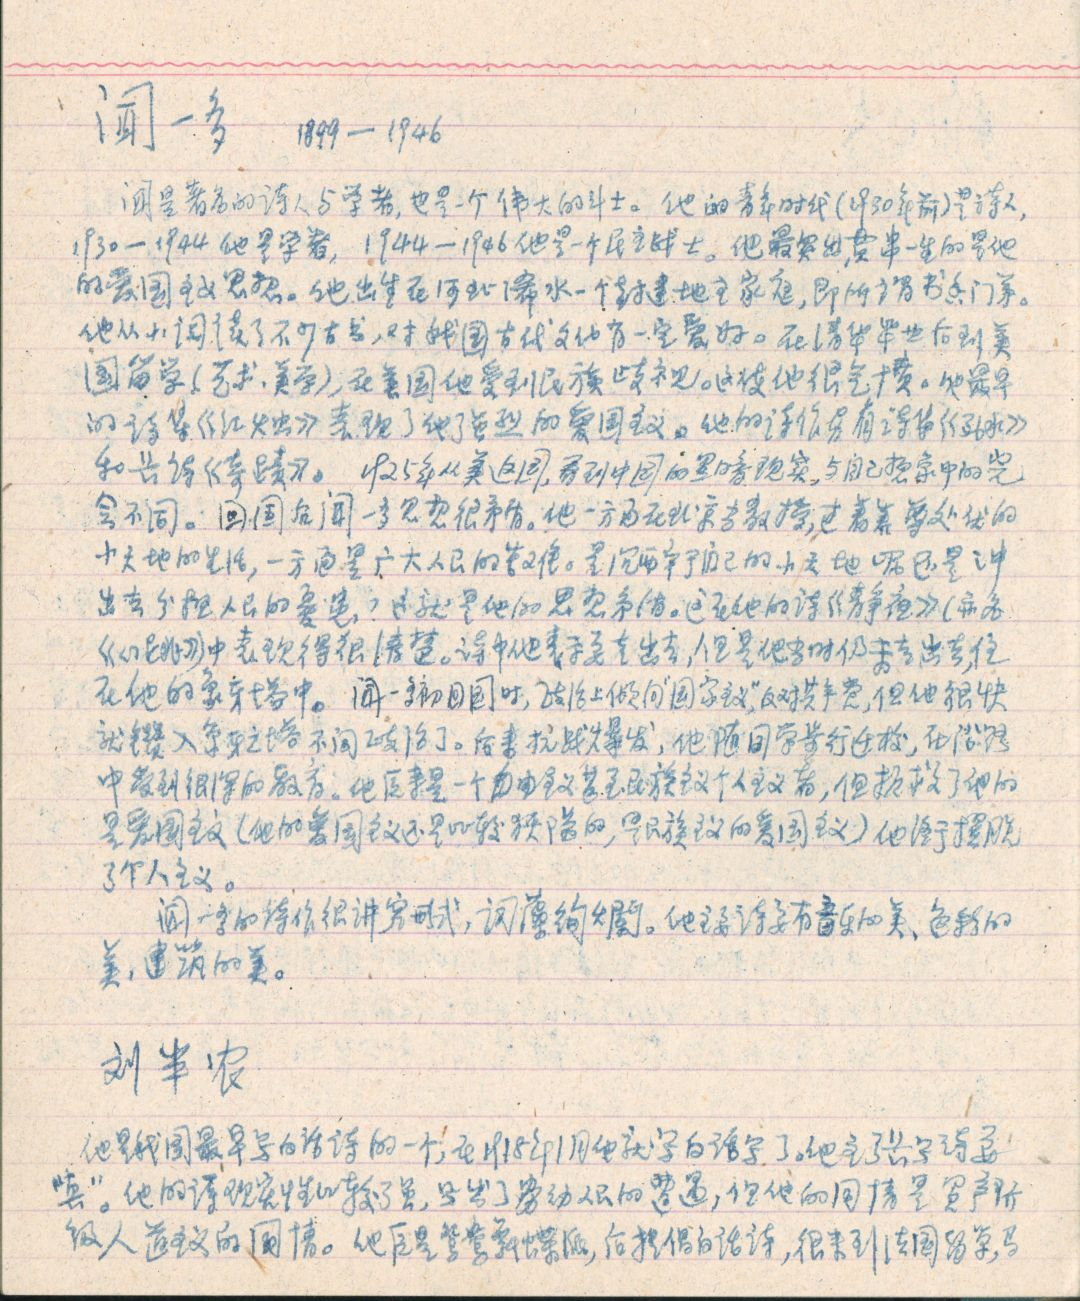 闻一多 1899—1946
闻是著名的诗人与学者,也是一个伟大的斗士。他的青年时代(1930年前)是诗人,
1930—1944他是学者,1944—1946他是一个民主战士。他最突出,贯串一生的是他
的爱国主义思想。他出生在河北浠水一个封建地主家庭,即所谓书香门第。
他从小阅读了不少古书,对我国古代文化有一定爱好。在清华毕业后到美
国留学(艺术、美学),在美国他受到民族歧视。这使他很气愤。他最早
的诗集《红烛》表现了他了强烈的爱国主义。他的诗作另有诗集《死水》
和长诗《奇迹》。1925年从美返国,看到中国的黑暗现实,与自己想象中的完
全不同。回国后闻一多思想很矛盾。他一方面在北京当教授,过着养尊处优的
小天地的生活,一方面是广大人民的贫困。是沉醉于自己的小天地呢还是冲
出去分担人民的忧患,?这就是他的思想矛盾。这在他的诗《静夜》(亦名
《心跳》)中表现得很清楚。诗中他表示要走出去,但是他当时仍未走出去,住
在他的象牙塔中。闻一多初回国时,政治上倾向“国家主义”,反对共产党,但他很快
就钻入象牙之塔不问政治了。后来抗战爆发,他随同学步行迁校,在沿路
中受到很深的教育。他原来是一个自由主义甚至民族主义个人主义者,但拯救了他的
是爱国主义(他的爱国主义还是比较狭隘的,是民族主义的爱国主义)他终于摆脱
了个人主义。
闻一多的诗作很讲究形式,词藻绚烂。他主张诗要有音乐的美、色彩的
美,建筑的美。
刘半农
他是我国最早写白话诗的一个,在1918年1月他就写白话字了。他主张写诗要
“真”。他的诗现实性比较了强,写出了劳动人民的遭遇,但他的同情是资产阶
级人道主义的同情。他原是鸳鸯蝴蝶派,后提倡白话诗,很来到法国留学,与